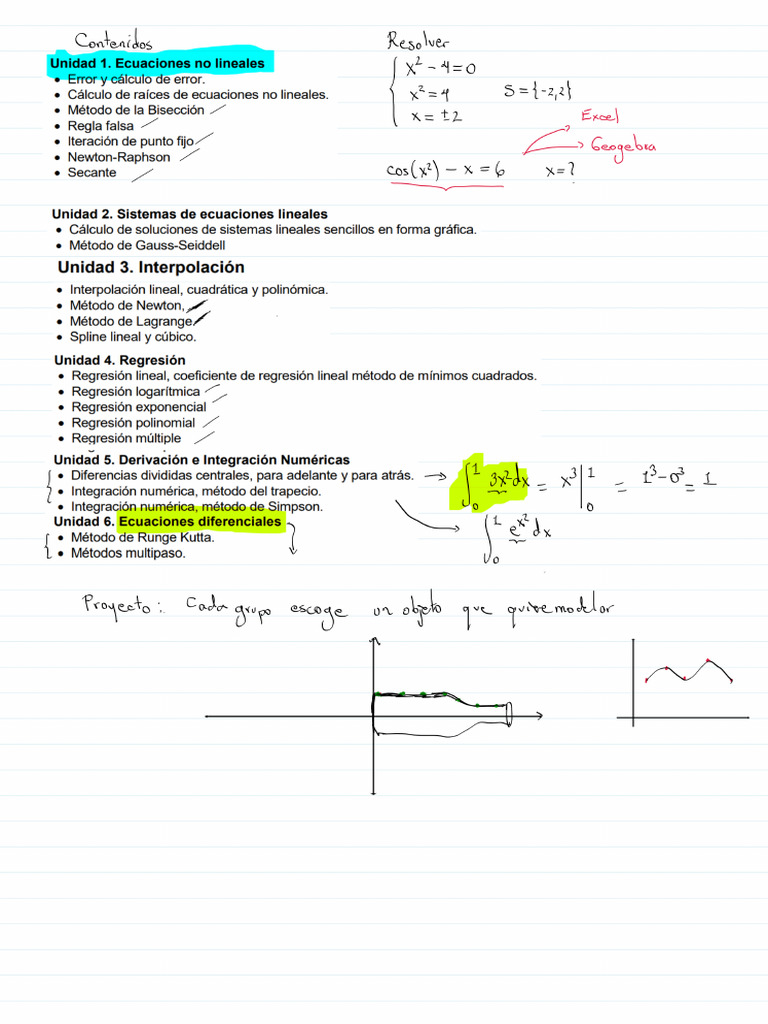 Contenidos
Unidad 1. Ecuaciones no lineales
• Error y cálculo de error.
• Cálculo de raíces de ecuaciones no lineales.
• Método de la Bisección
• Regla falsa
• Iteración de punto fijo
• Newton-Raphson
• Secante
Resolver
x² - 4 = 0
x² = 4
S = {-2,2}
x = ±2
Excel
Geogebra
cos(x²) - x = 6
x = ?
Unidad 2. Sistemas de ecuaciones lineales
• Cálculo de soluciones de sistemas lineales sencillos en forma gráfica.
• Método de Gauss-Seiddell
Unidad 3. Interpolación
• Interpolación lineal, cuadrática y polinómica.
• Método de Newton,
• Método de Lagrange
• Spline lineal y cúbico.
Unidad 4. Regresión
• Regresión lineal, coeficiente de regresión lineal método de mínimos cuadrados.
• Regresión logarítmica
• Regresión exponencial
• Regresión polinomial
• Regresión múltiple
Unidad 5. Derivación e Integración Numéricas
• Diferencias divididas centrales, para adelante y para atrás.
• Integración numérica, método del trapecio.
• Integración numérica, método de Simpson.
∫₀¹ 3x² dx = x³ |₀¹ = 1³ - 0³ = 1
∫₀¹ e^x² dx
Unidad 6. Ecuaciones diferenciales
• Método de Runge Kutta.
• Métodos multipaso.
Proyecto: Cada grupo escoge un objeto que quiere modelar